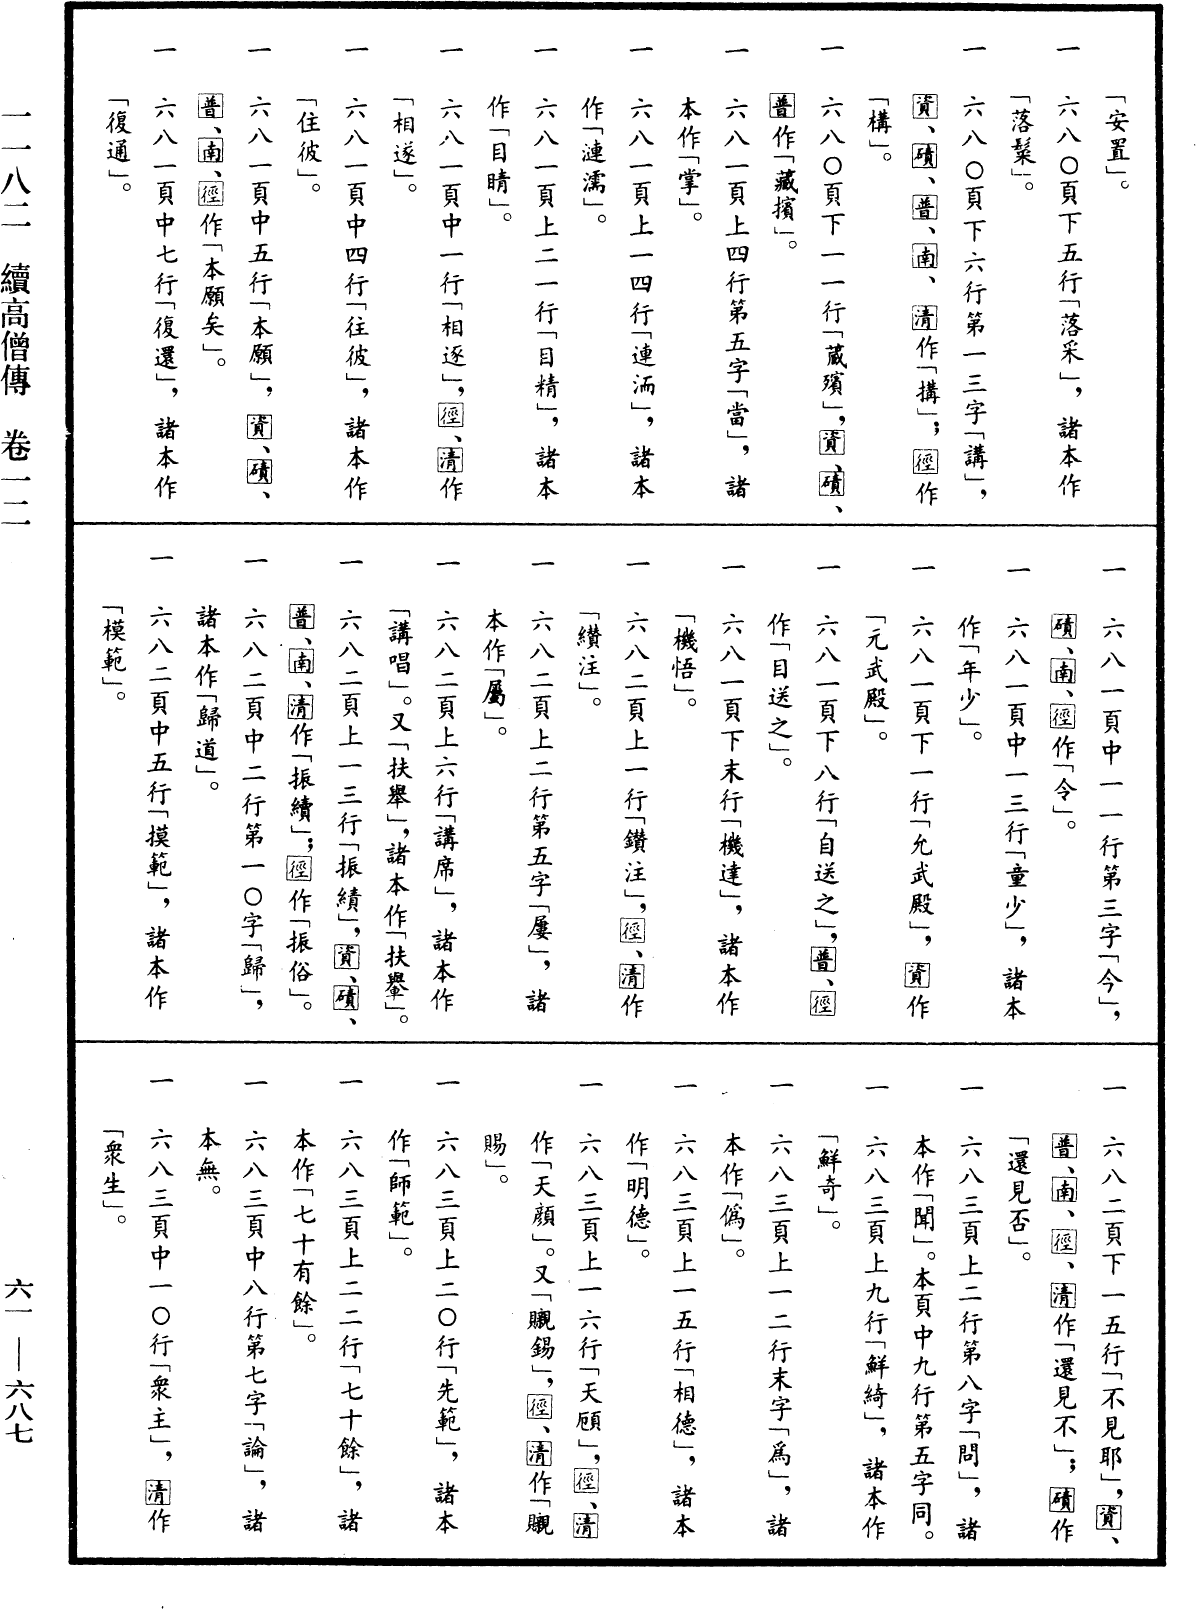 「安置」。
一　六八〇頁下五行「落采」，諸本作
「落髮」。
一　六八〇頁下六行第一三字「講」，
資、磧、普、南、清作「搆」；徑作
「構」。
一　六八〇頁下一一行「蔵殯」，資、磧、
普作「藏擯」。
一　六八一頁上四行第五字「當」，諸
本作「掌」。
一　六八一頁上一四行「連洏」，諸本
作「漣濡」。
一　六八一頁上二一行「目精」，諸本
作「目睛」。
一　六八一頁中一行「相逐」，徑、清作
「相遂」。
一　六八一頁中四行「往彼」，諸本作
「住彼」。
一　六八一頁中五行「本願」，資、磧、
普、南、徑作「本願矣」。
一　六八一頁中七行「復還」，諸本作
「復通」。
一　六八一頁中一一行第三字「今」，
磧、南、徑作「令」。
一　六八一頁中一三行「童少」，諸本
作「年少」。
一　六八一頁下一行「允武殿」，資作
「元武殿」。
一　六八一頁下八行「自送之」，普、徑
作「目送之」。
一　六八一頁下末行「機達」，諸本作
「機悟」。
一　六八二頁上一行「鑽注」，徑、清作
「纘注」。
一　六八二頁上二行第五字「屢」，諸
本作「屬」。
一　六八二頁上六行「講席」，諸本作
「講唱」。又「扶舉」，諸本作「扶轝」。
一　六八二頁上一三行「振績」，資、磧、
普、南、清作「振續」；徑作「振俗」。
一　六八二頁中二行第一〇字「歸」，
諸本作「歸道」。
一　六八二頁中五行「摸範」，諸本作
「模範」。
一　六八二頁下一五行「不見耶」，資、
普、南、徑、清作「還見不」；磧作
「還見否」。
一　六八三頁上二行第八字「問」，諸
本作「聞」。本頁中九行第五字同。
一　六八三頁上九行「鮮綺」，諸本作
「鮮奇」。
一　六八三頁上一二行末字「爲」，諸
本作「僞」。
一　六八三頁上一五行「相德」，諸本
作「明德」。
一　六八三頁上一六行「天頋」，徑、清
作「天顔」。又「䞋錫」，徑、清作「䞋
賜」。
一　六八三頁上二〇行「先範」，諸本
作「師範」。
一　六八三頁上二二行「七十餘」，諸
本作「七十有餘」。
一　六八三頁中八行第七字「論」，諸
本無。
一　六八三頁中一〇行「衆主」，清作
「衆生」。
一一八二　續高僧傳　卷一二
六一—六八七